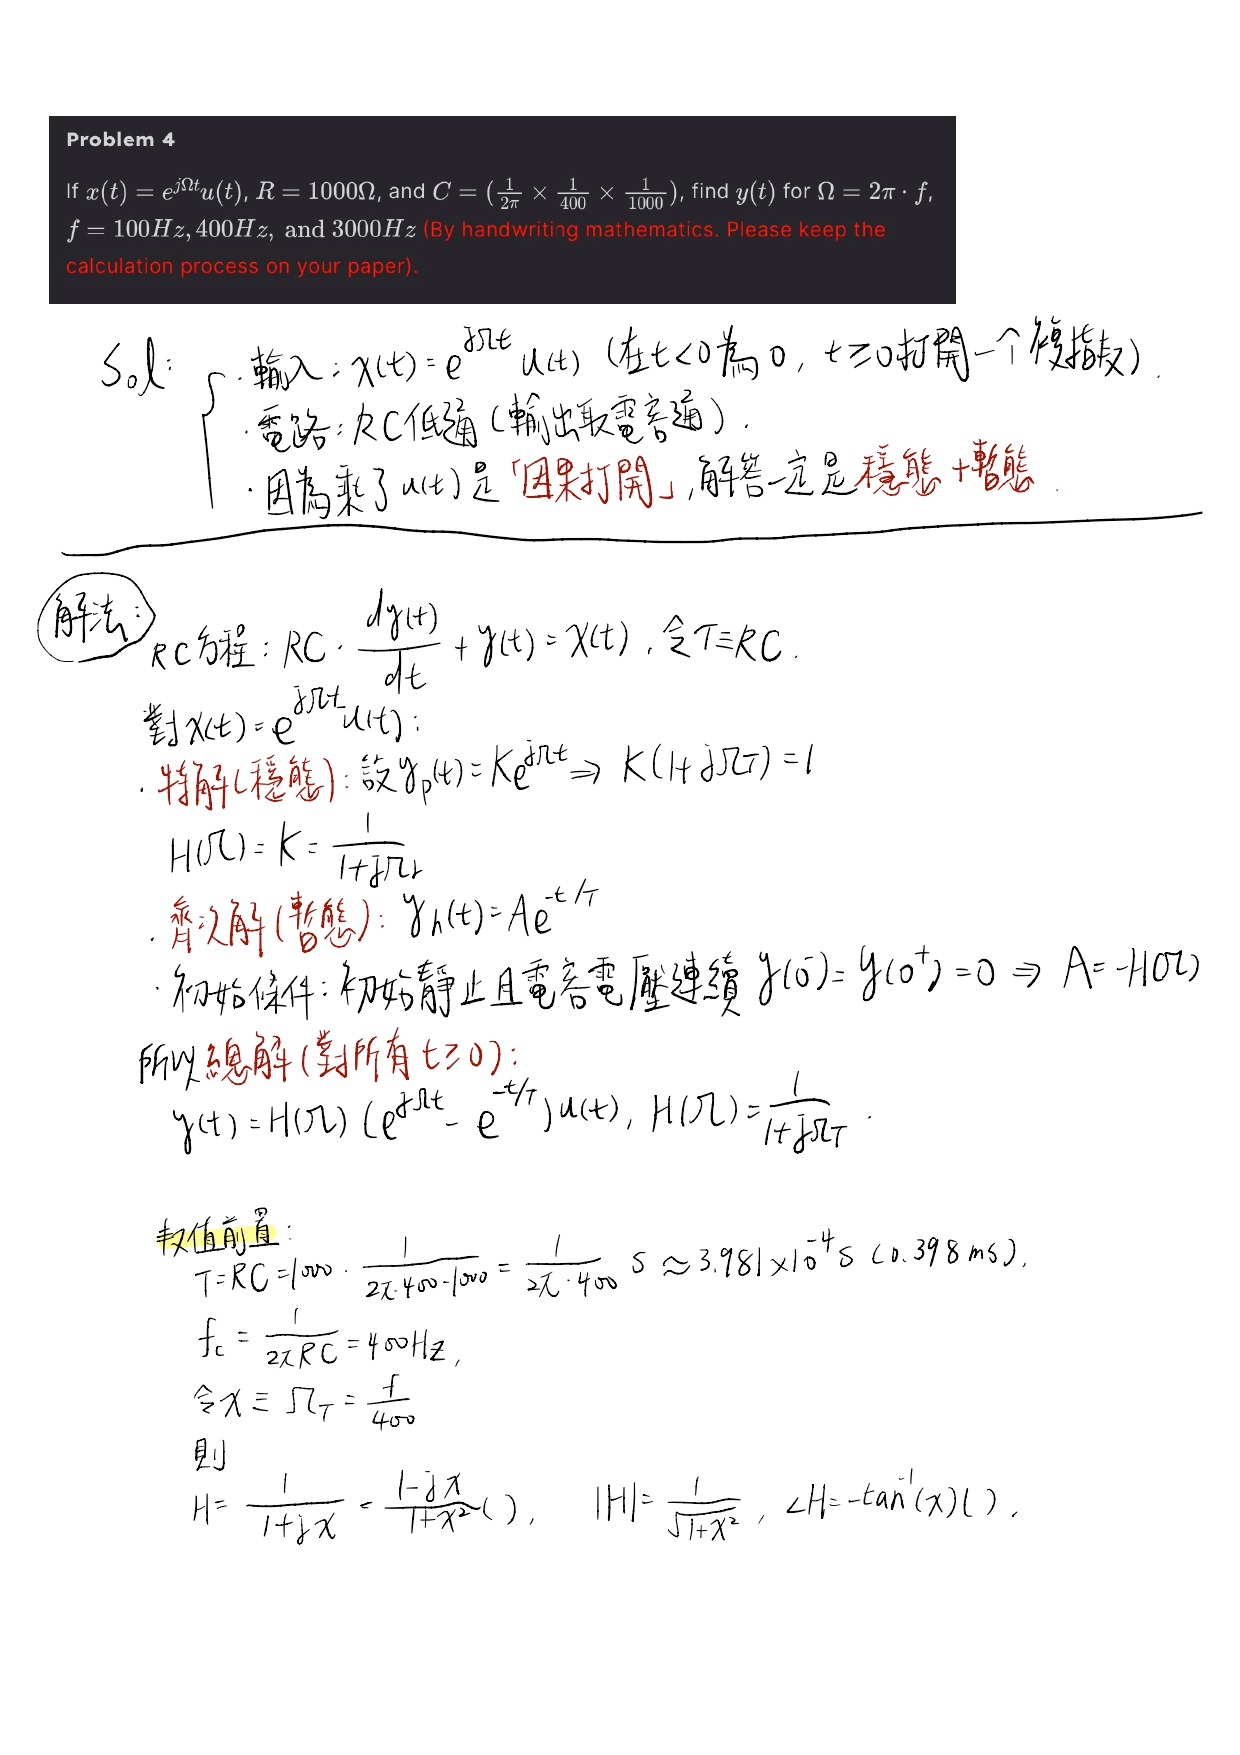 Problem 4
If x(t) = e^{jΩt}u(t), R = 1000Ω, and C = (1/2π × 1/400 × 1/1000), find y(t) for Ω = 2π · f,
f = 100Hz, 400Hz, and 3000Hz (By handwriting mathematics. Please keep the
calculation process on your paper).
Sol:
· 輸入: x(t) = e^{jΩt} u(t) (在t<0為0, t≥0打開一个複指数).
· 電路: RC低通 (輸出取電容通).
· 因為乘了u(t)是「因果打開」,解答一定是穩態+暫態.
解法:
RC方程: RC · dy(t)/dt + y(t) = x(t), 令T≡RC.
對x(t) = e^{jΩt}u(t):
· 特解(穩態): 設y_p(t) = Ke^{jΩt} ⇒ K(1+jΩT) = 1
H(Ω) = K = 1/(1+jΩτ)
· 齊次解(暫態): y_h(t) = Ae^{-t/T}
· 初始條件: 初始靜止且電容電壓連續 y(0^-) = y(0^+) = 0 ⇒ A = -H(Ω)
所以總解(對所有t≥0):
y(t) = H(Ω) (e^{jΩt} - e^{-t/T})u(t), H(Ω) = 1/(1+jΩT).
取值前置:
T=RC=1000 · 1/(2π·400·1000) = 1/(2π·400) s ≈ 3.981×10^{-4}s (0.398ms).
f_c = 1/(2πRC) = 400Hz,
令x ≡ ΩT = f/400
則
H = 1/(1+jx) = (1-jx)/(1+x²) ( ), |H| = 1/√(1+x²), ∠H = -tan^{-1}(x)( ).